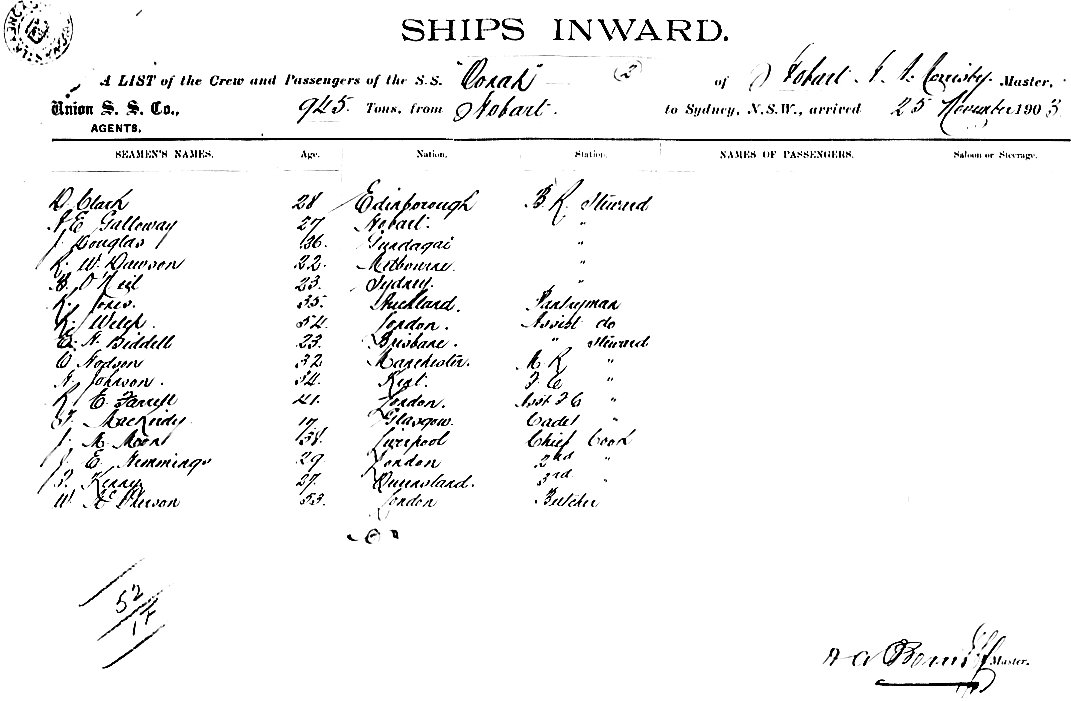 SHIPS INWARD.
A LIST of the Crew and Passengers of the S.S. "Oonah" (2) of Hobart Master,
Union S. S. Co., 945 Tons, from Hobart. to Sydney, N.S.W., arrived 25 November 1903
AGENTS,
SEAMEN'S NAMES. Age. Nation. Station. NAMES OF PASSENGERS. Saloon or Steerage.
D Clark 28 Edinborough B R Steward
E Galloway 27 Hobart. "
J. Douglas 36. Gundagai "
R. W. Dawson 22. Melbourne. "
O'Neil 23. Sydney. "
R. Jones. 35. Auckland. Pantryman
R. Welch. 54. London. Assist do
E. A. Biddell 23. Brisbane. " Steward
C Hodson 32 Manchester. M R "
A. Johnson. 34. Kent. F C "
R E Farrell 41. London. Asst F C "
MacKirdy 17 Glasgow. Cadet "
J. M. Moon 38. Liverpool Chief Cook
J. E. Hemmings 29 London 2nd "
Kenny 27. Queensland. 3rd "
W. McPherson 53. London Butcher
52/17
Master.